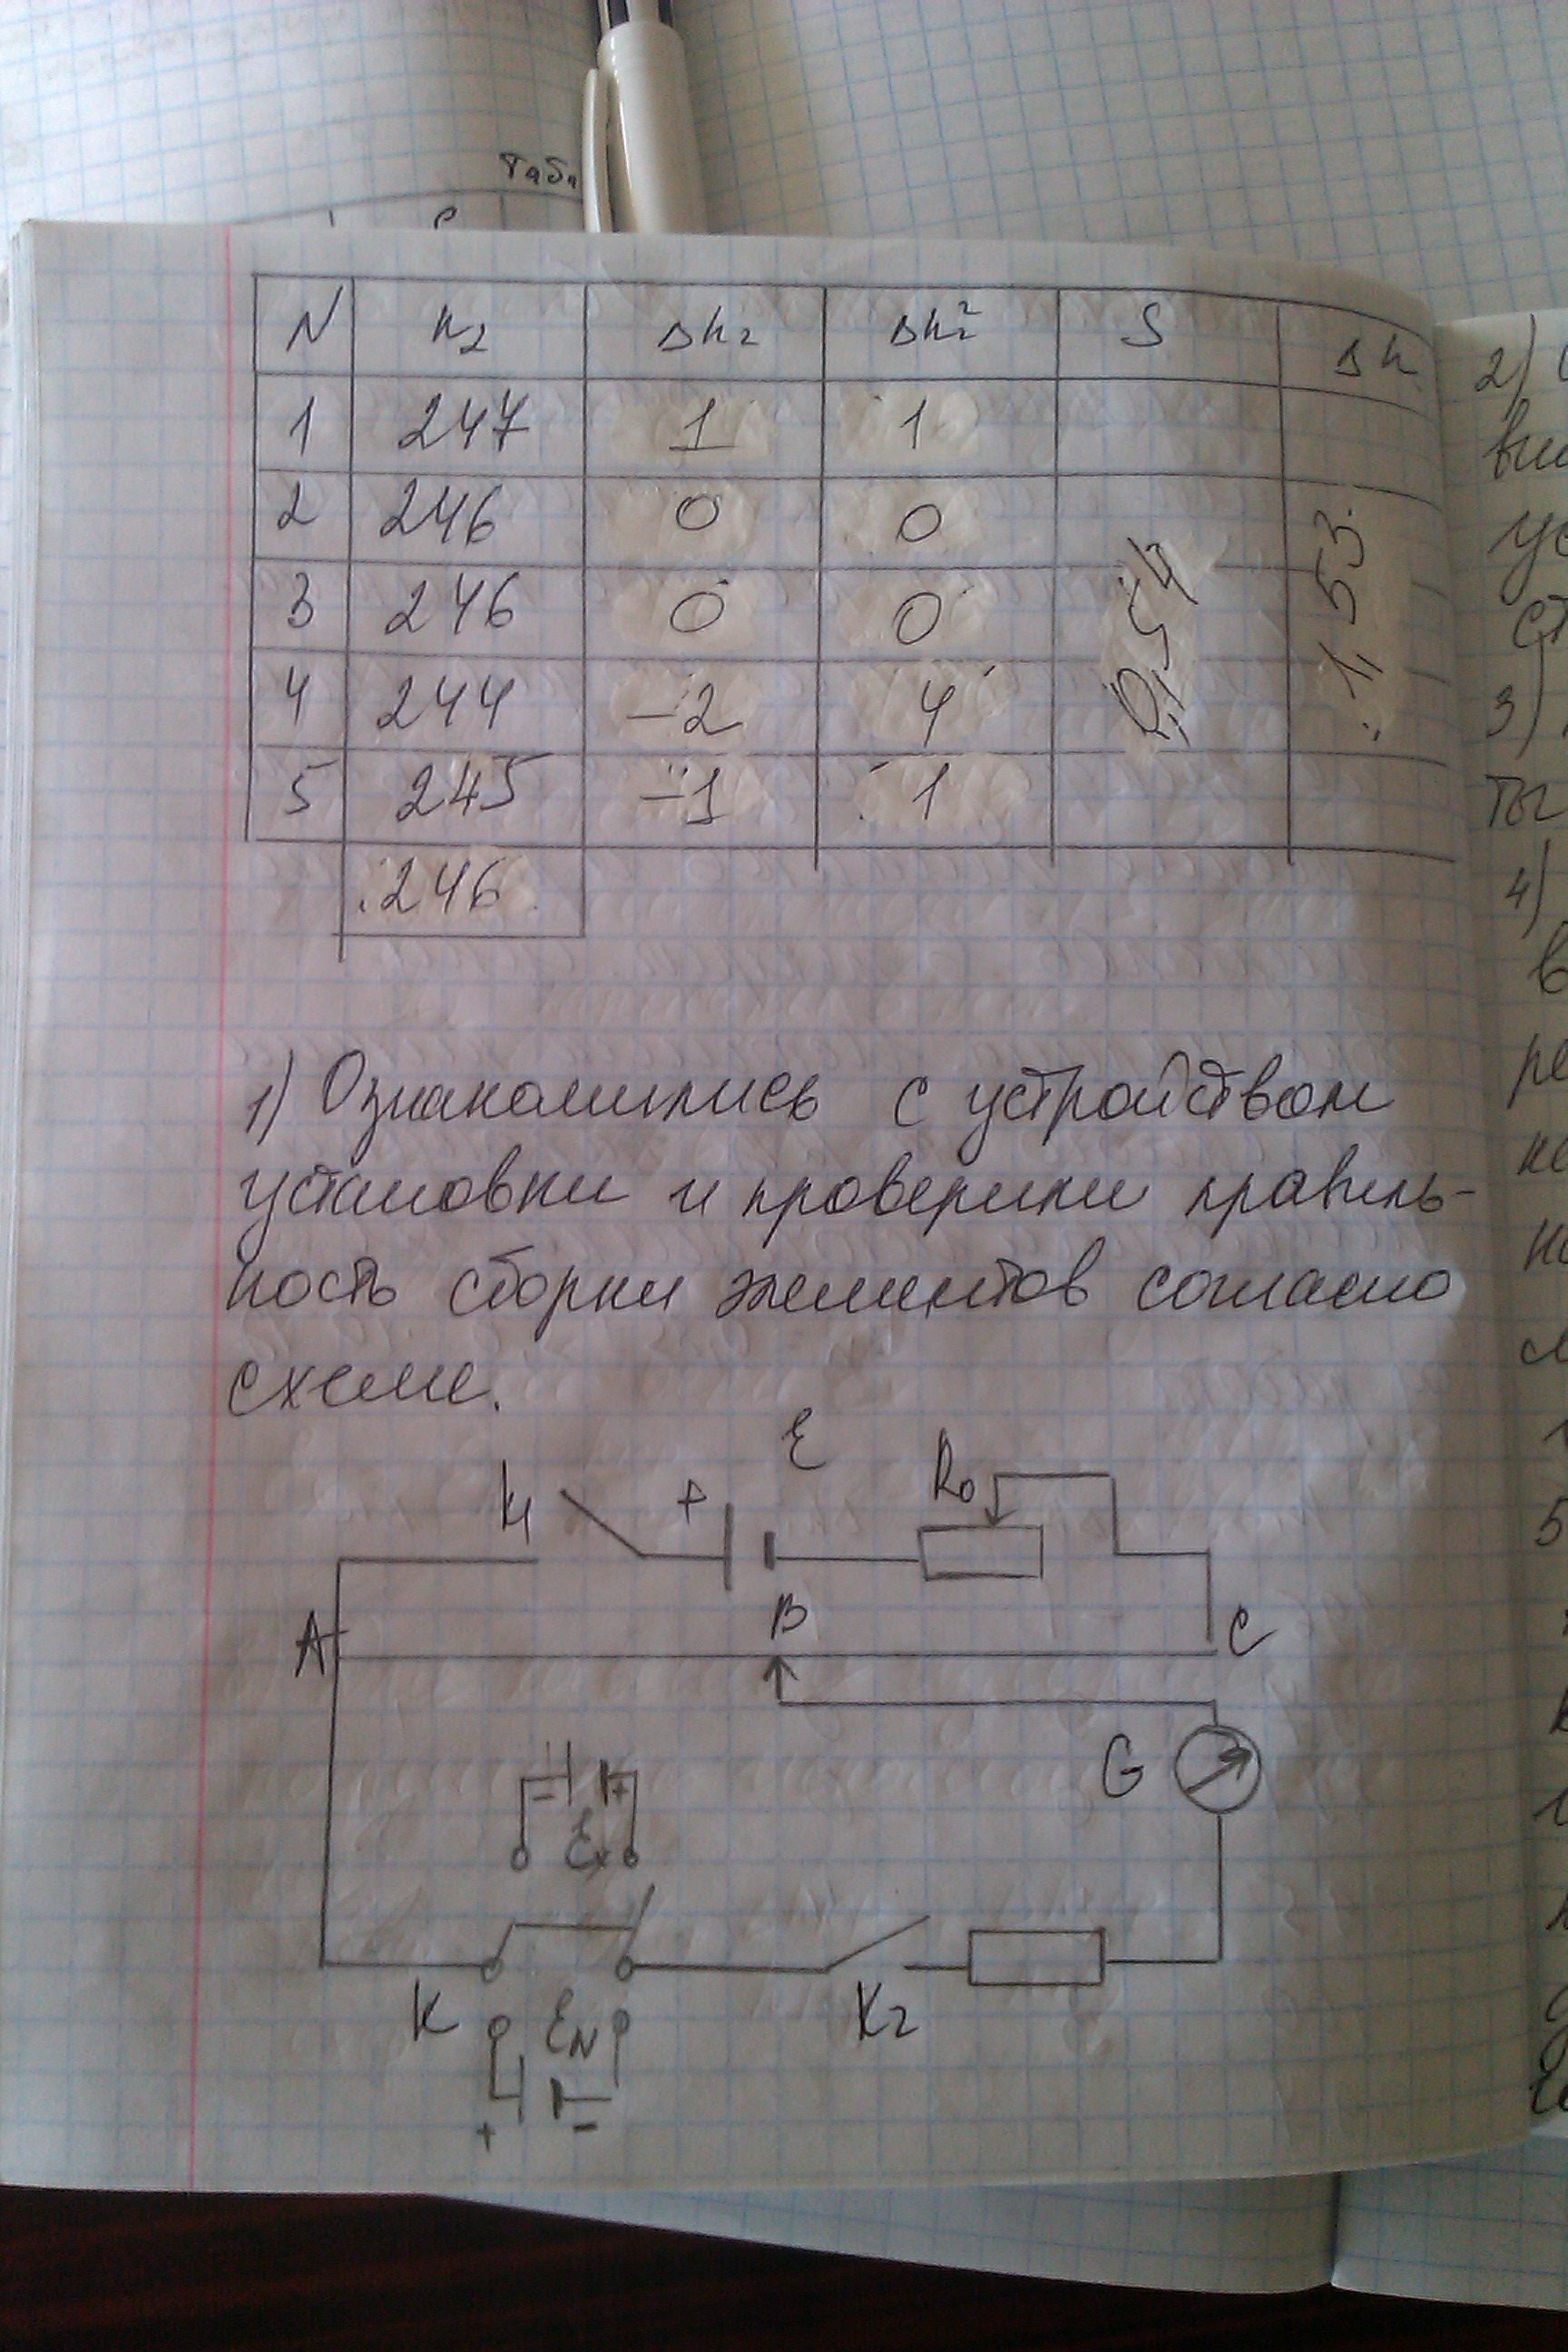 Табл
N h₂ Δh₂ Δh₂² S Δh
1 247 1 1
2 246 0 0
3 246 0 0 0,54 1,53
4 244 -2 4
5 245 -1 1
246
1) Ознакомились с устройством
установки и проверили правиль-
ность сборки элементов согласно
схеме.
ℰ
K₁ + R₀
B
A C
G
- +
ℰx
K ℰN K₂
+ -
2)
3)
ты
4)
в
5